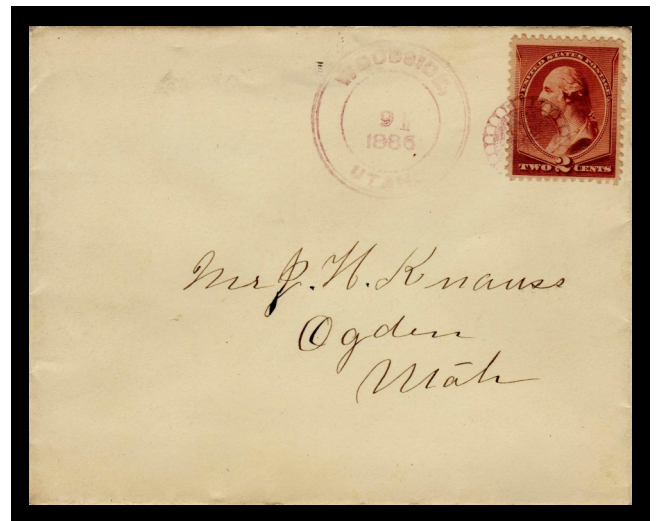 WOODSIDE,
9 11
1886
UTAH.
UNITED STATES POSTAGE
TWO 2 CENTS
Mr J. H. Knauss
Ogden
Utah